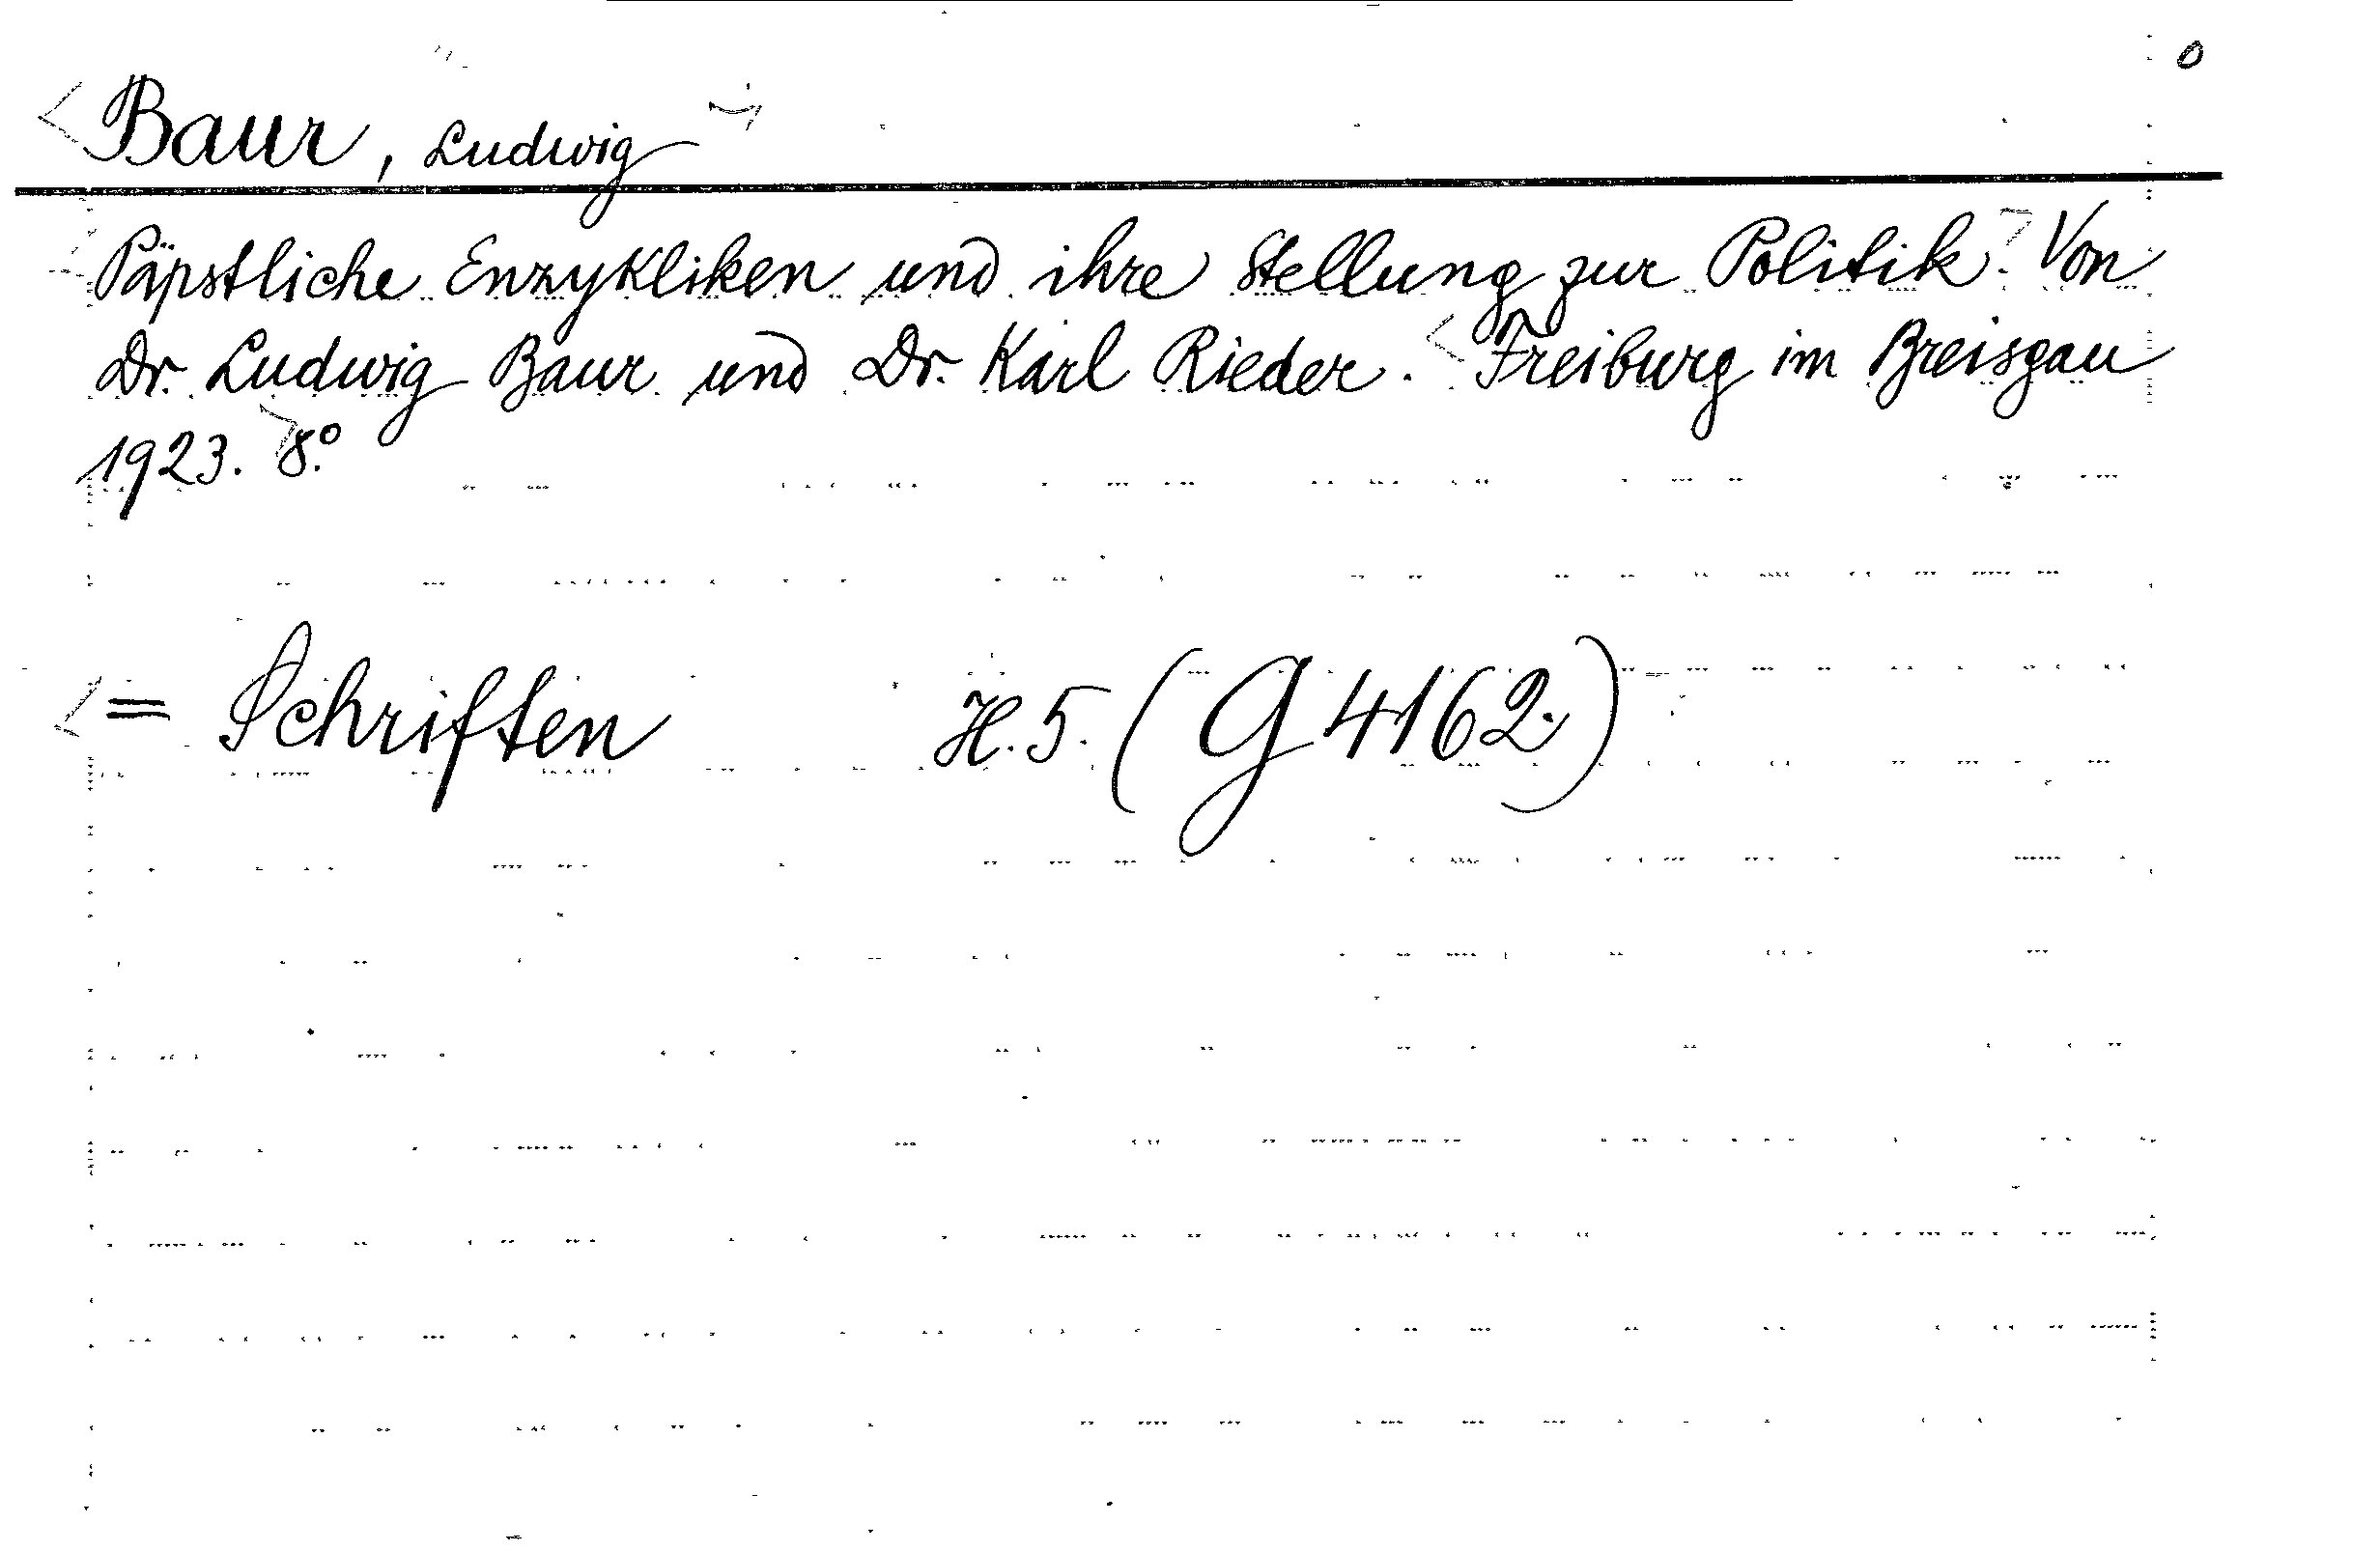 0
Baur, Ludwig
Päpstliche Enzykliken und ihre Stellung zur Politik. Von
Dr. Ludwig Baur und Dr. Karl Rieder. Freiburg im Breisgau
1923. 8°.
= Schriften H. 5. (G 4162.)